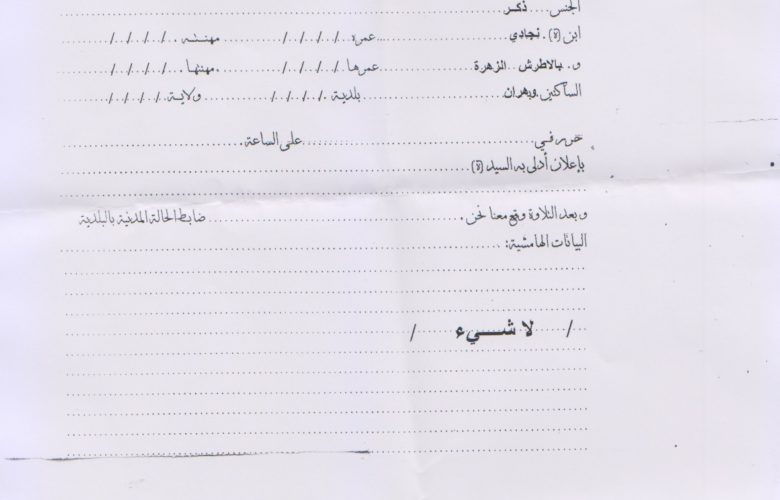 الجنس.....ذكر
ابن (ة). نجادي عمره /./././. مهنته /./././.
و. بالاطرش الزهرة عمرها /./././. مهنتها /./././.
الساكنين وبهران بلدية /./././. ولاية /./././.
حرر في على الساعة
بإعلان أدلى به السيد (ة)
و بعد التلاوة وقع معنا نحن. ضابط الحالة المدنية بالبلدية
البيانات الهامشية:
/ لا شيء /